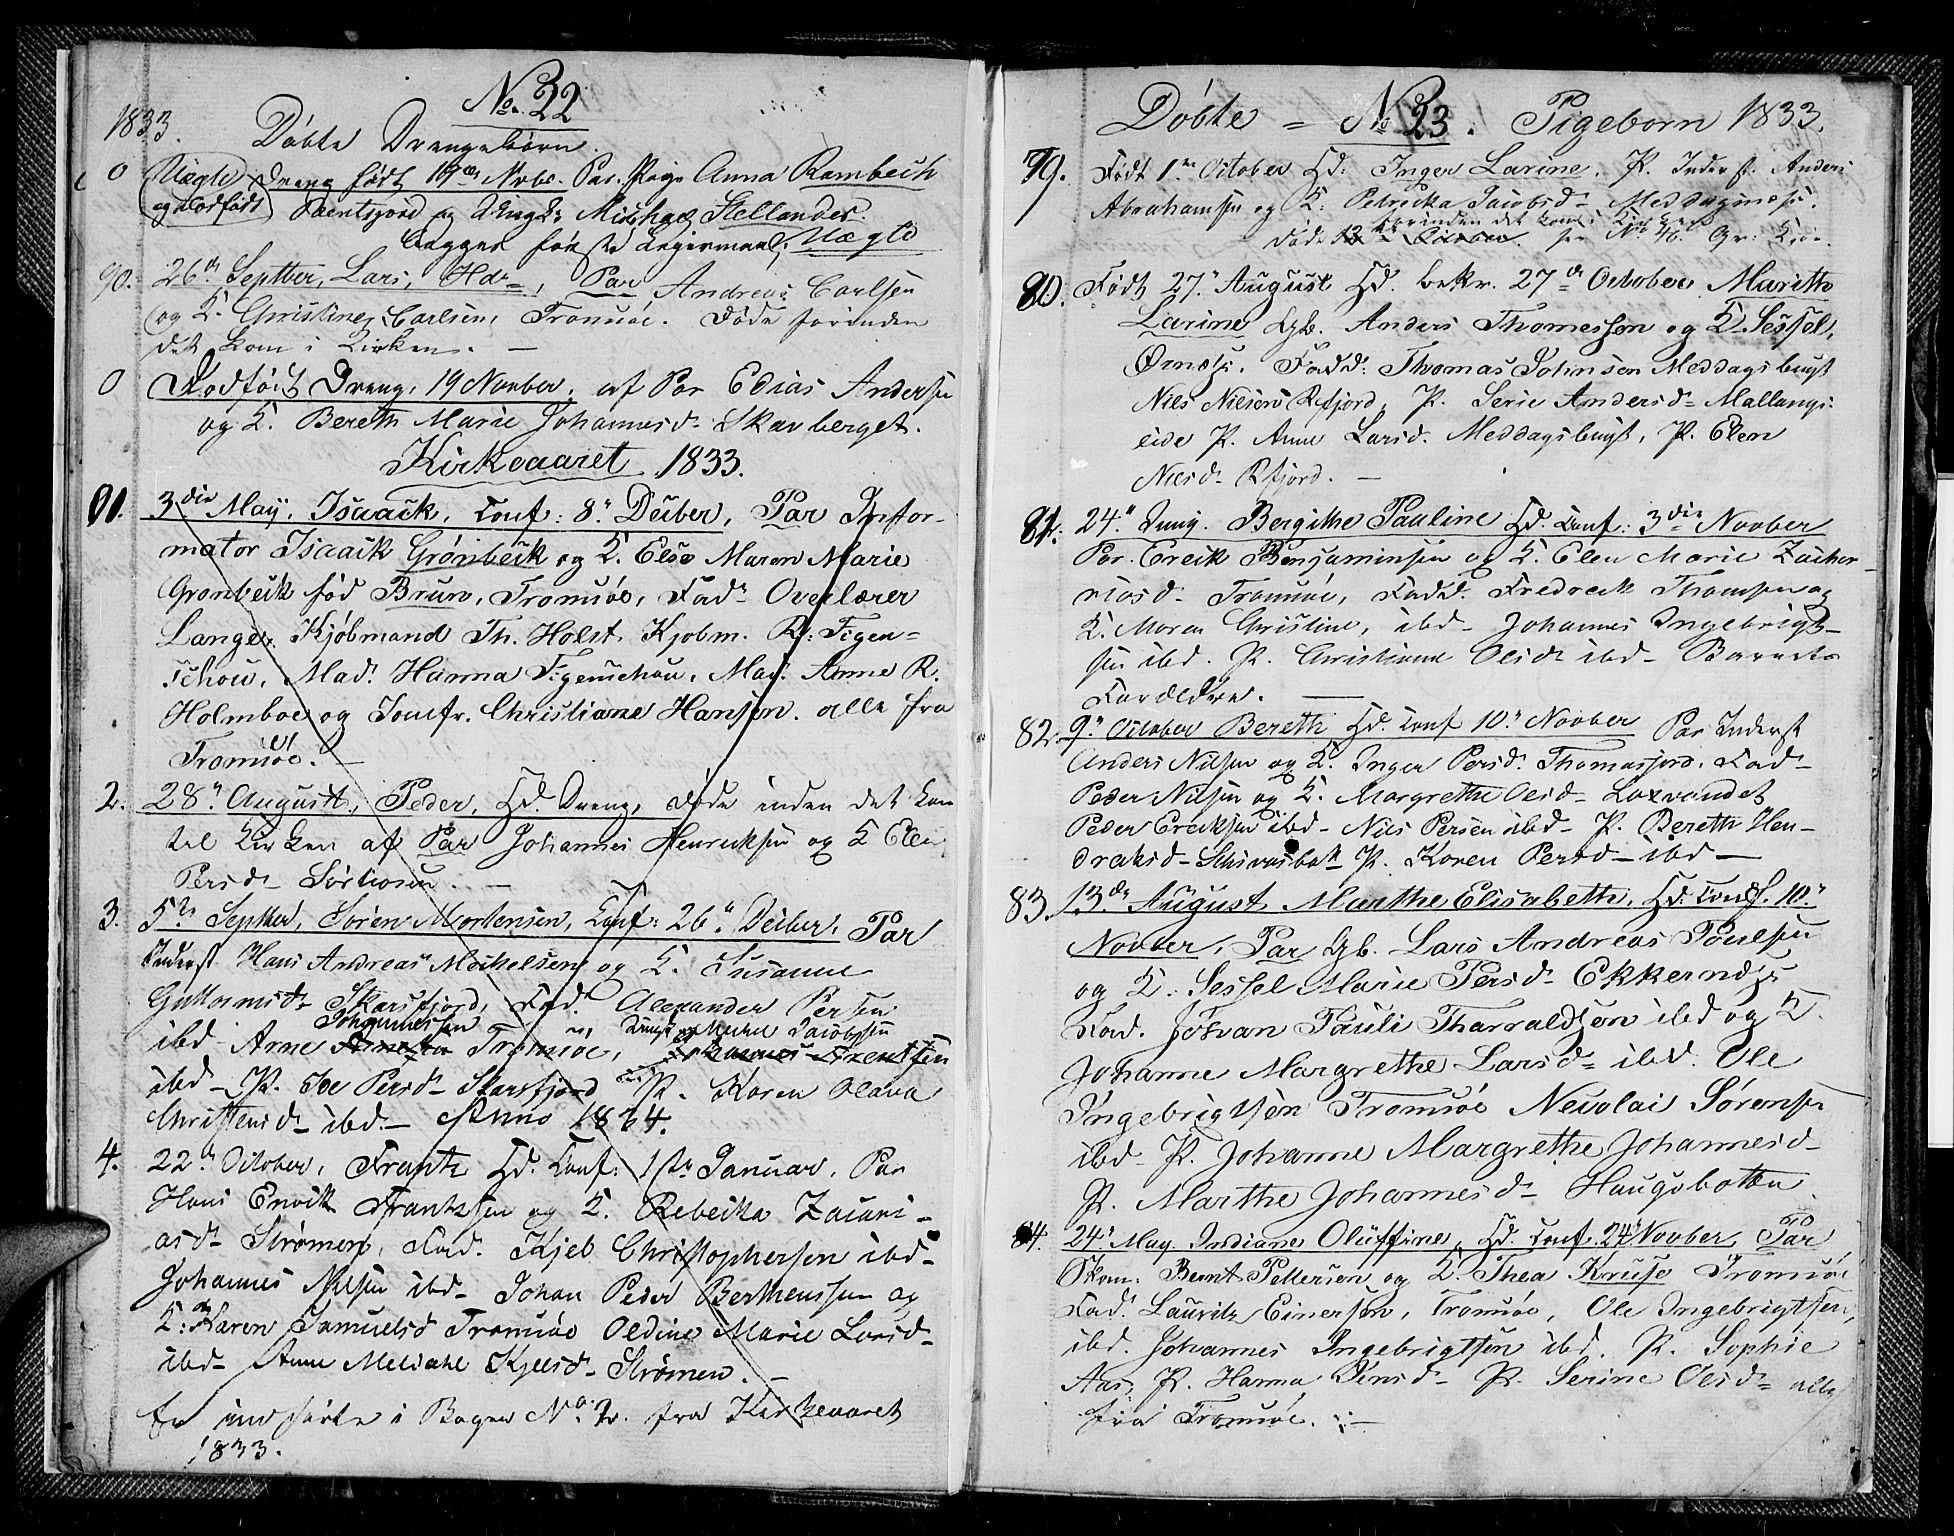 No. 22
1833.
Döbte Drengebörn.
0 Uægte Dreng födt 19de Novbr. Par. Pige Anna Rambech
og dödfödt og Ungk: Michael Stellander
begges första Leiermaal. Uægte
90. 26de Septber, Lars, Hd, Par Andreas Carlsen
og K. Christine Carlsen, Tromsöe. Döde forinden
det kom i Kirken. —
0 Dödfödt Dreng, 19 Novber. af Par Edias Andersen
og K. Bereth Marie Johannesd. Skavberget.
Kirkeaaret 1833.
01. 3die May. Isaack, Conf: 8de Decber, Par Infor-
mator Isaack Grönbeck og K. Else Maren Marie
Gronbeck föd Brun, Tromsöe, Fad. Overlærer
Lange. Kjöbmand Th. Holst. Kjobm. R: Figen-
schou, Mad. Hanna Figenschou, Mad. Anne R.
Holmboe og Jomfr. Christiane Hansen. alle fra
Tromsöe. —
2. 28de August, Peder, Hd. Dreng, döde inden det kom
til Kirken af Par Johannes Henricksen og K Elen
Persd.
3. 5te Septber, Sören Mortensen, Conf: 26de Decber, Par
Inderst Hans Andreas Michelsen og K. Susanne
Guttormsd. Skarsfjord, Fad. Alexander Persen
Johannesen Jacobsen
ibd Arne Tromsöe, Johannes
ibd — P. Persd. Skarsfjord P. Karen Olava
Christensd. ibd. — Anno 1834.
4. 22de October, Frantz Hd. Conf: 1ste Januar. Par
Hans Envik Frantzsen og K. Rebecka Zacari-
asd. Strömen, Fad. Kjel Christophersen ibd.
Johannes Nilsen ibd — Johan Peder Berthenssen og
K: Karen Samuelsd Tromsöe Oldine Marie Larsd.
ibd — Anne Meldahl Kjelsd. Strömen. —
Er indförte i Bogen No. fra Kirkeaaret
1833.
Döbte = No 23. Pigeborn 1833.
79. Födt 1ste October Hd. Inger Larine. P. Inderst. Anders
Abrahamsen og K. Petricka Jacobsd.
forinden det kom i Kirken
döde October. No 46.
80. Födt 27. August Hd. bekr. 27de October Marithe
Larine Gb. Anders Thomessen og K Sessel,
Fadd: Thomas Johnsen Meddagsbugt
Niels Nielsen Rfjord, P. Serie Andersd. Mallangs-
eide P. Anne Larsd. Meddagsbugt, P. Elen
Nielsd. Rfjord. —
81. 24de Juny. Bergithe Pauline Hd. Conf: 3die Novber
Par. Ereik Benjaminsen og K. Elen Marie Zachar-
riasd. Tromsöe, Fadd. Fredreck Thomsen og
K. Maren Christine, ibd — Johannes Ingebrigt-
sen ibd. P. Christianne Olsd. ibd — Barnets
Forældre. —
82. 9de October Bereth Hd. Conf 10de Novber Par Inderst
Anders Nilsen og K. Inger Persd. Thomasjord. Fad —
Peder Nilsen og K. Margrethe Olsd. Laxvandet
Peder Ereksen ibd — Niels Persen ibd — P. Bereth Hen-
drcksd — P. Karen Persd — ibd —
83. 13de August Marthe Elisabeth, Hd. Conf. 10de
Novber, Par Gb. Lars Andreas Poulsen
og K. Sessel Marie Persd. Ekkernæs
Fad. Johan Pauli Tharraldsen ibd og K.
Johanne Margrethe Larsd. ibd. Ole
Ingebrigtsen Tromsöe Nevolai Sörensen
ibd — P. Johanne Margrethe Johannesd —
P. Marthe Johannesd. Haugsbotten
84. 24de May. Indiane Oluffine, Hd. Conf. 24de Novber, Par
Skom. Bernt Pettersen og K. Thea Kruse Tromsöe
Fad. Lauritz Einersen, Tromsöe, Ole Ingebrigtsen,
ibd. Johannes Ingebrigtsen ibd. P. Sophie
Aas, P. Hanna Jensd — P. Serine Olsd — alle
fra Tromsöe. —